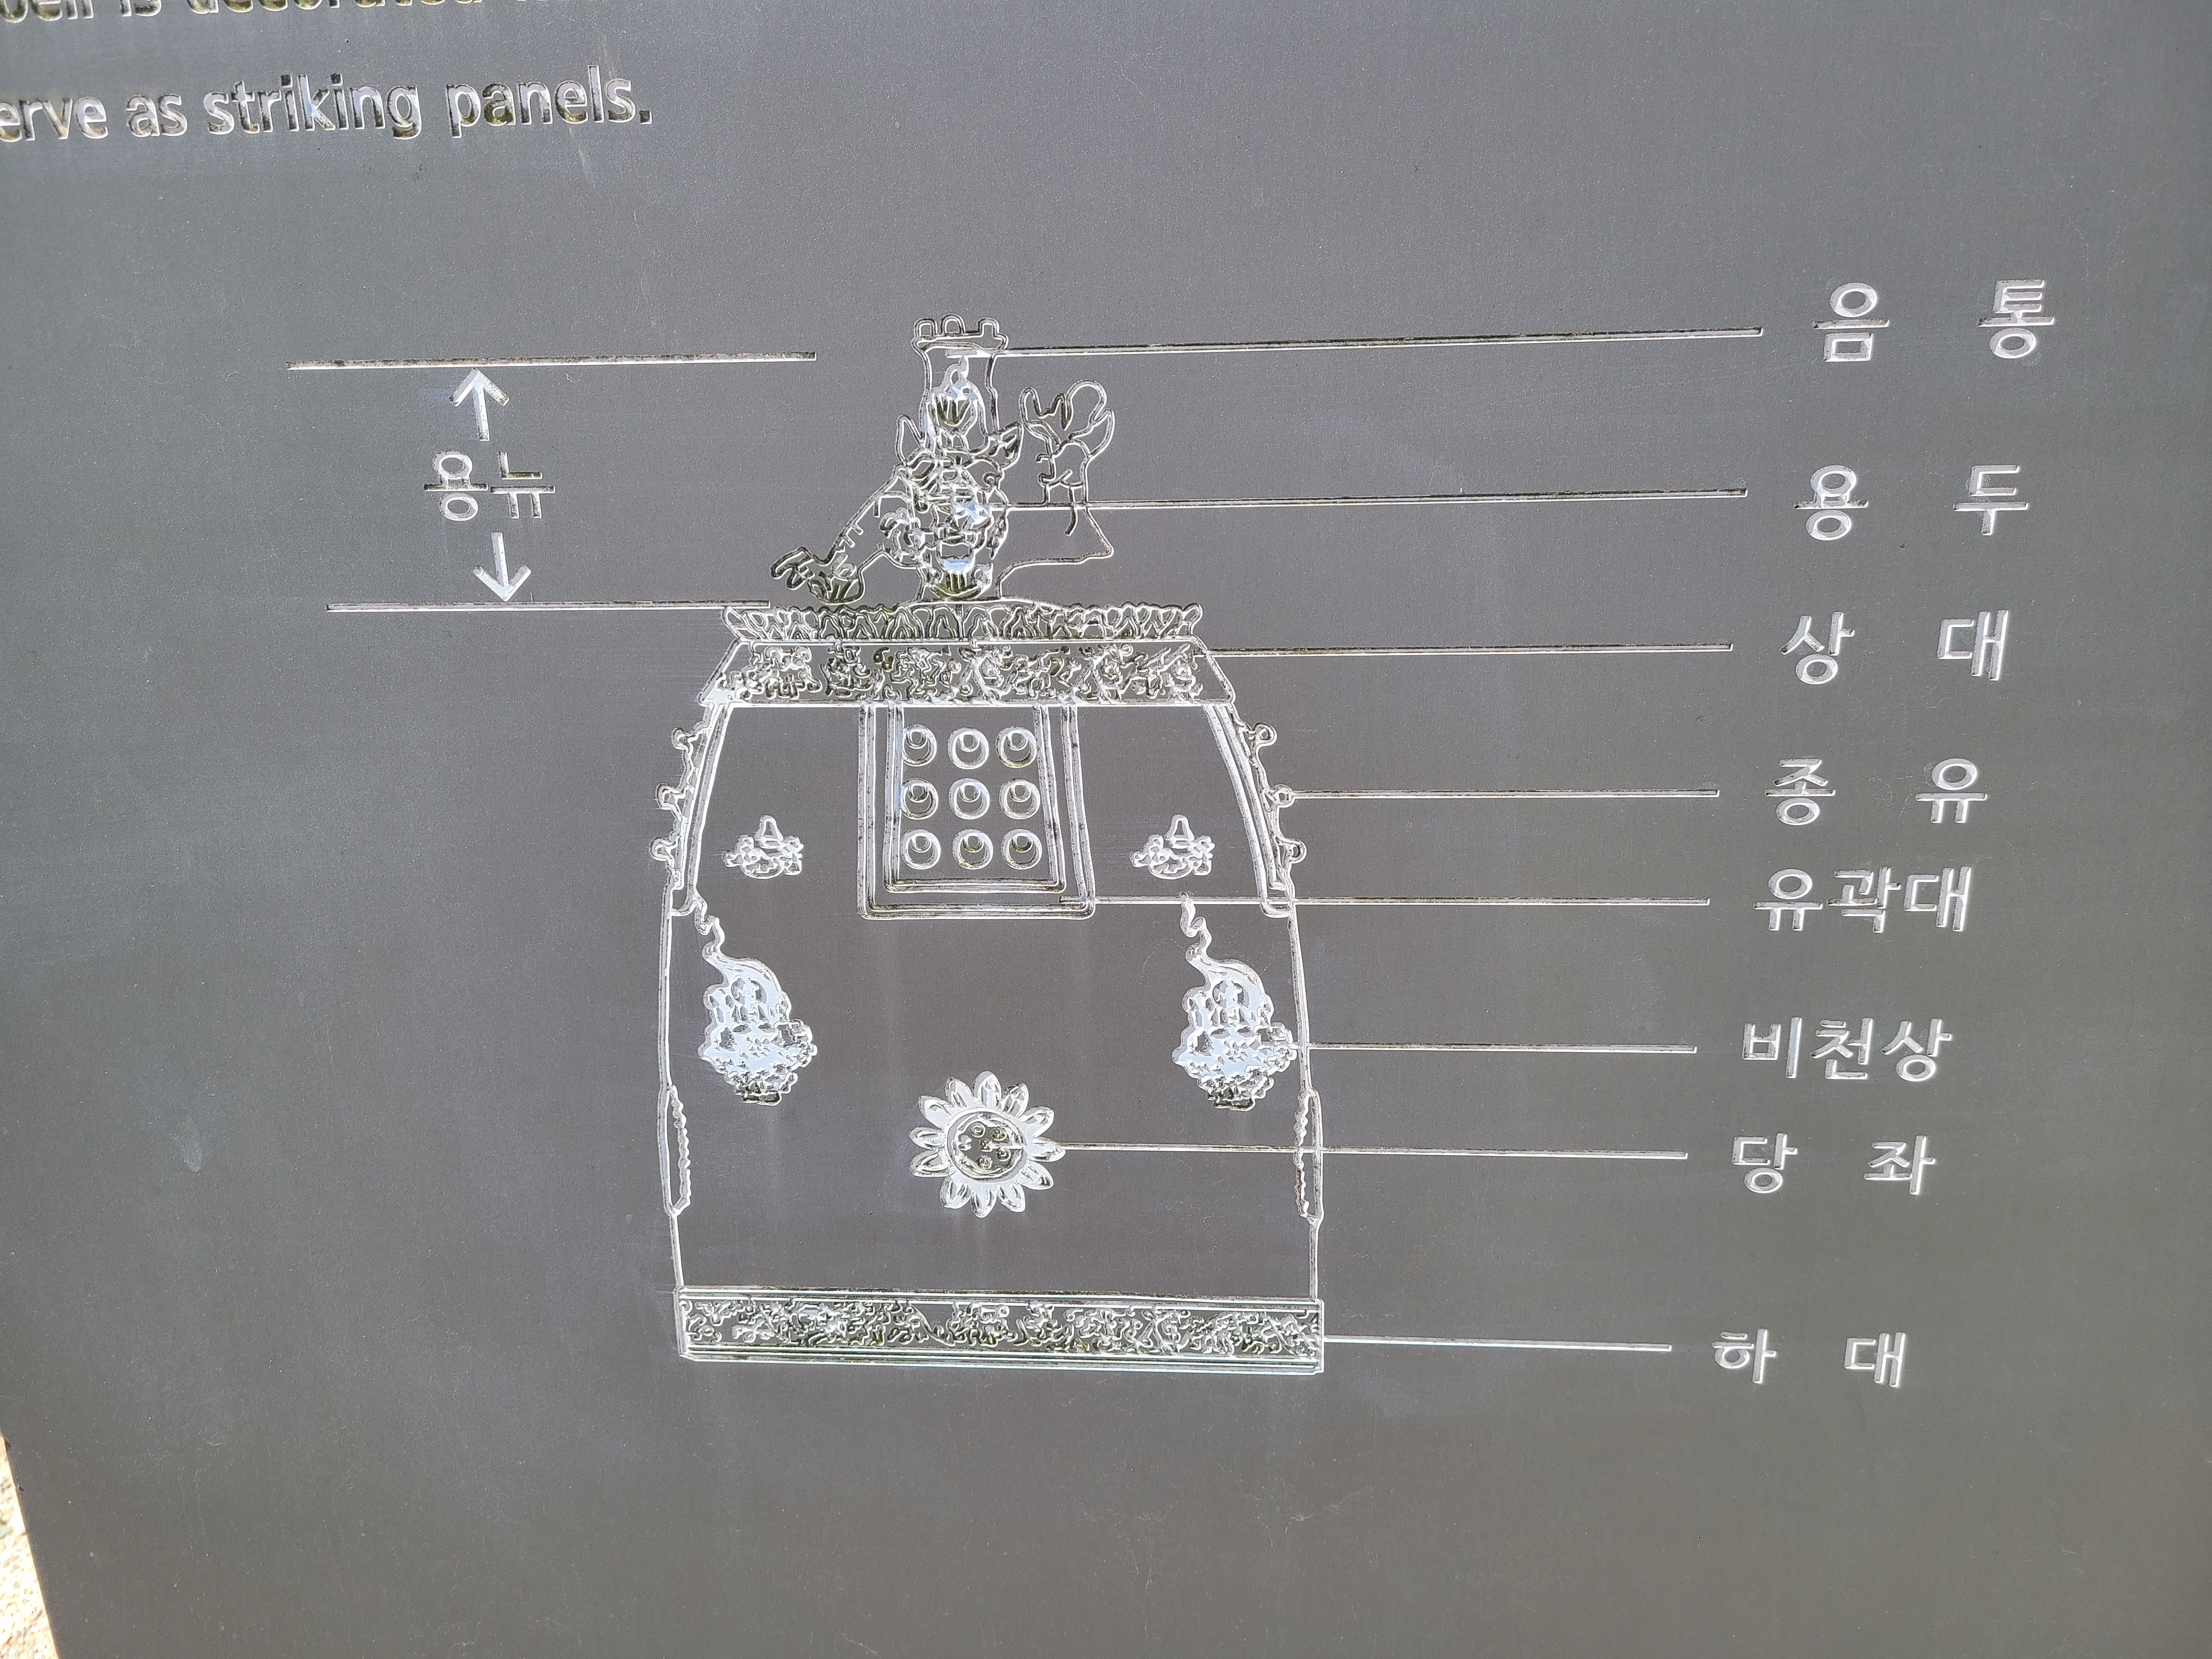 is decorated
erve as striking panels.
음 통
용뉴
용 두
상 대
종 유
유곽대
비천상
당 좌
하 대